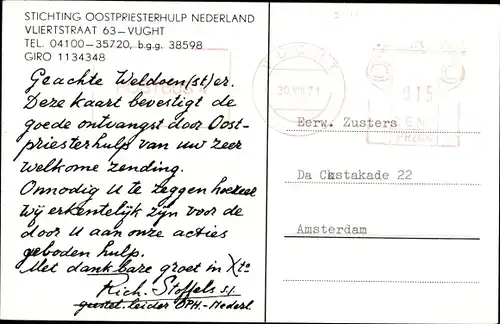 STICHTING OOSTPRIESTERHULP NEDERLAND
VLIERTSTRAAT 63—VUGHT
TEL. 04100—35720, b.g.g. 38598
GIRO 1134348
Geachte Weldoen(st)er.
Deze kaart bevestigt de
goede ontvangst door Oost-
priesterhulp van uw zeer
welkome zending.
Onnodig U te zeggen hoezeer
wij erkentelijk zijn voor de
door U aan onze acties
geboden hulp.
Met dankbare groet in Xto
Rich. Stoffels s.j.
geestel. leider OPH.-Nederl.
POSTBUS
VUGHT
20.VII.71
015
CEN
Eerw. Zusters
Da Costakade 22
Amsterdam